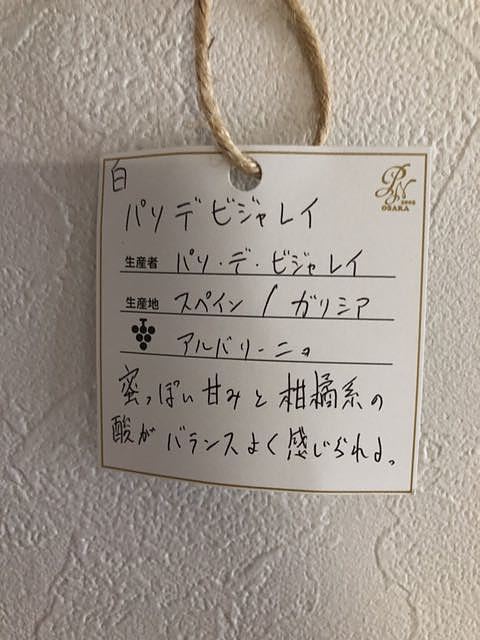 白
パソ デ ビジャレイ
生産者 パソ・デ・ビジャレイ
生産地 スペイン / ガリシア
アルバリーニョ
蜜っぽい甘みと柑橘系の
酸が バランスよく感じられる。
OSAKA